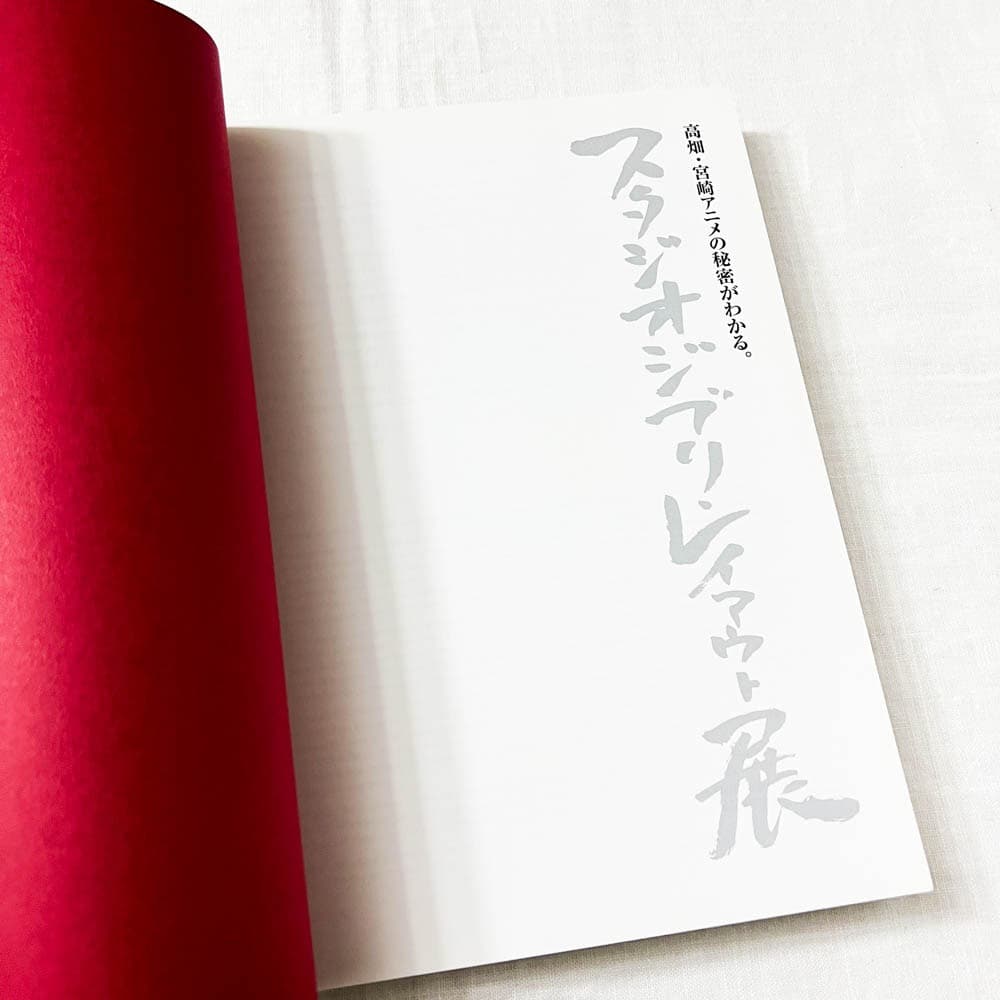 高畑・宮崎アニメの秘密がわかる。
スタジオジブリ・レイアウト展